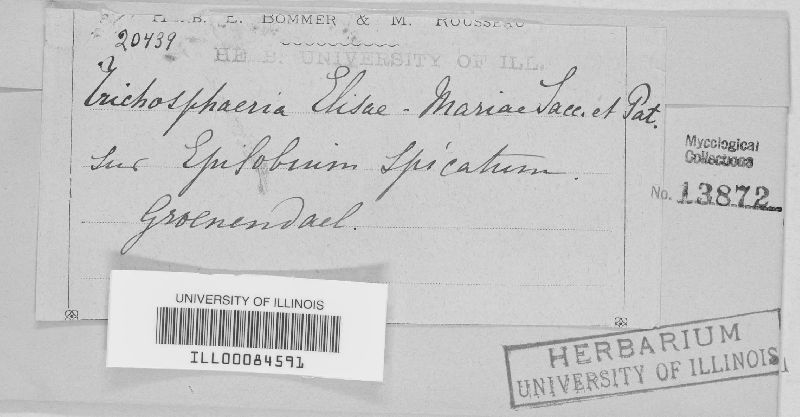 HERB. E. BOMMER & M. ROUSSEAU
20439
HERB. UNIVERSITY OF ILL.
Trichosphaeria Elisae - Mariae Sacc. et Pat.
sur Epilobium spicatum.
Groenendael.
Mycological
Collections
No. 13872
UNIVERSITY OF ILLINOIS
ILL00084591
HERBARIUM
UNIVERSITY OF ILLINOIS